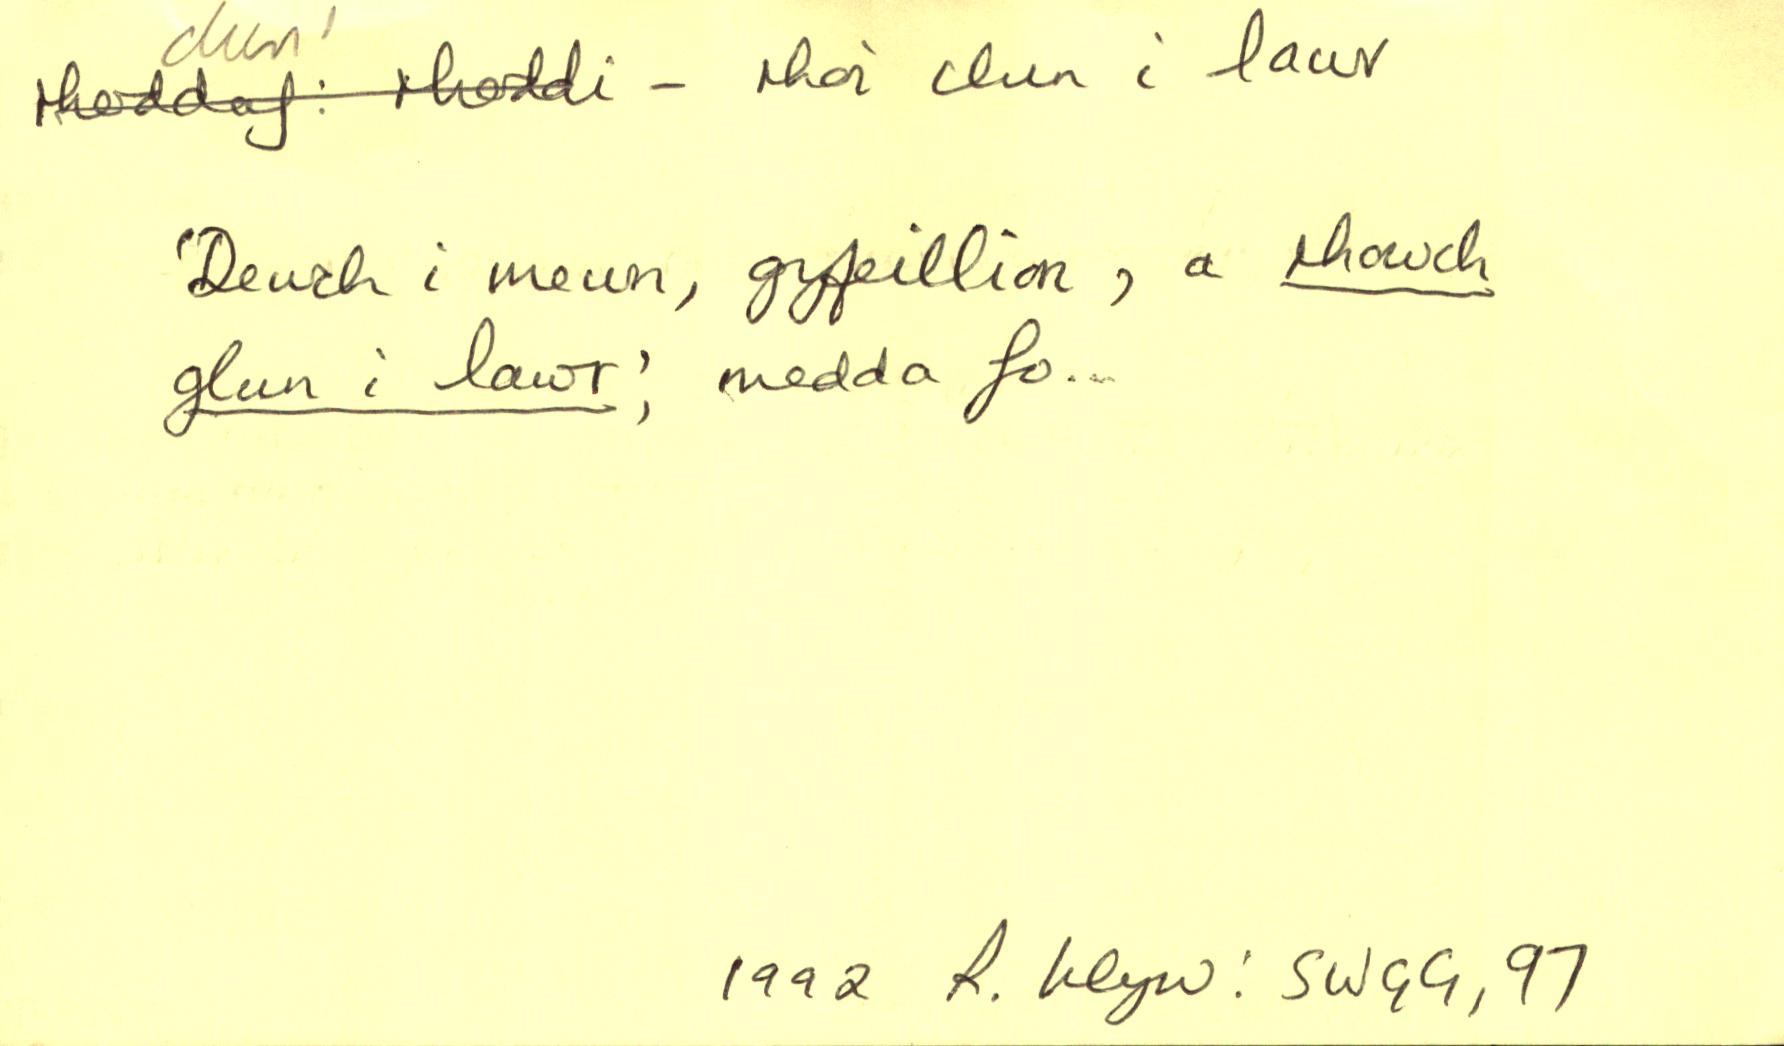 clun¹
rhoddaf: rhoddi - rhoi clun i lawr
'Dewch i mewn, gyfeillion, a rhowch
glun i lawr', medda fo...
1992 R. Llyw: SWGG, 97